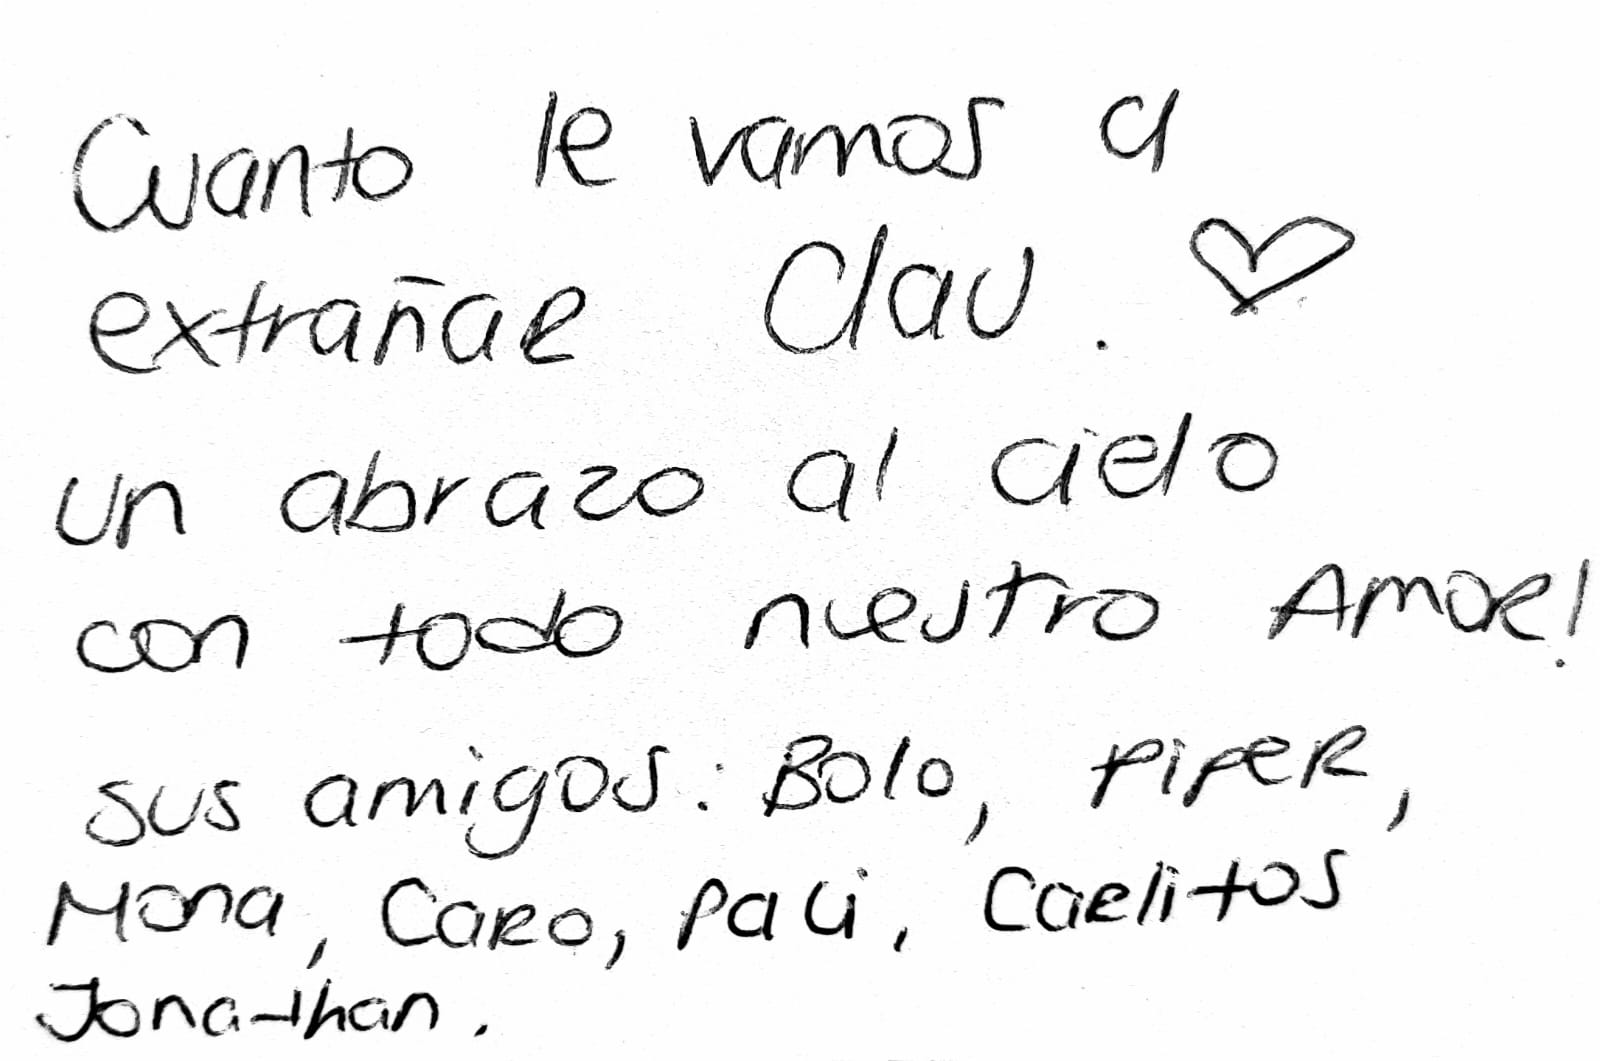 Cuanto le vamos a
extrañar Clau. ♡
un abrazo al cielo
con todo nuestro Amor!
sus amigos: Bolo, PIPER,
Mona, Caro, Pau, Carlitos
Jonathan.